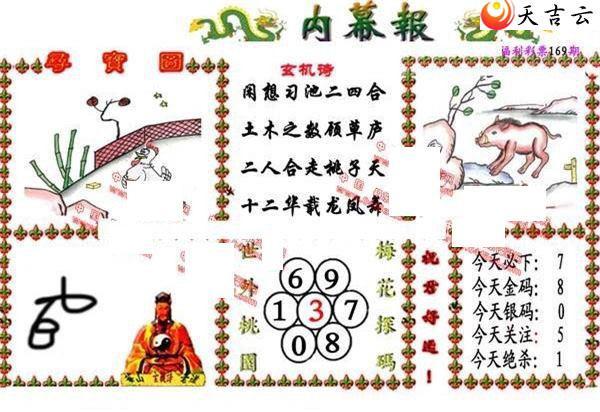 天吉云
内幕報
福利彩票169期
尋寶圖
玄机诗
闲想习池二四合
土木之数顾草庐
二人合走桃子天
十二华载龙凤舞
世外桃園
6 9
1 3 7
0 8
梅花探碼
祝君好运！
今天必下：7
今天金码：8
今天银码：0
今天关注：5
今天绝杀：1